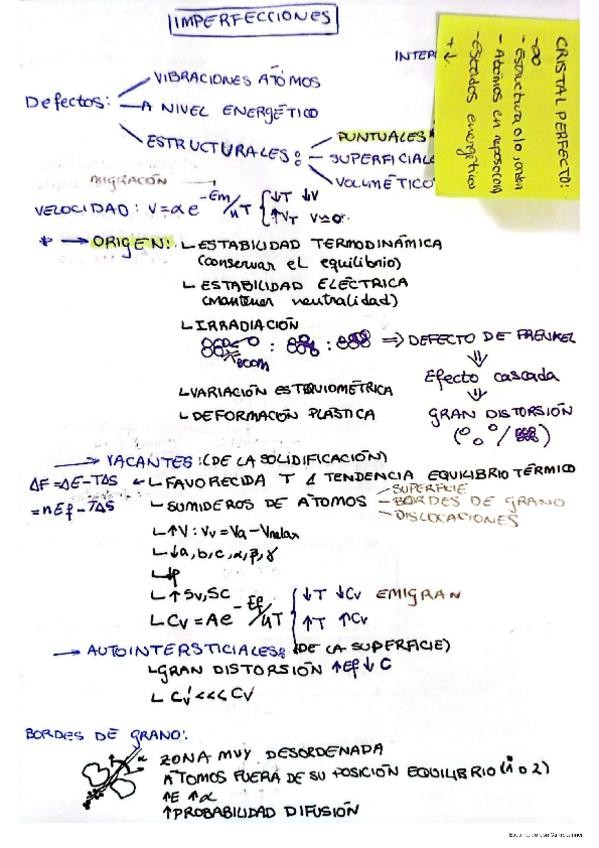 IMPERFECCIONES
CRISTAL PERFECTO:
- ∞
- Estructura olo, orden
- Átomos en reposo
- Estados energético
+ ↓
INTER
Defectos:
VIBRACIONES ATÓMOS
A NIVEL ENERGÉTICO
ESTRUCTURALES:
PUNTUALES
SUPERFICIALE
VOLMÉTICO
MIGRACIÓN
VELOCIDAD: V = α e^-Em/KT { ↓T ↓V
↑VT V≃0
* → ORIGEN: ↳ ESTABILIDAD TERMODINÁMICA
(conservar el equilibrio)
↳ ESTABILIDAD ELÉCTRICA
(mantener neutralidad)
↳ IRRADIACIÓN
BOOM
⇒ DEFECTO DE FRENKEL
⇓
Efecto cascada
⇓
GRAN DISTORSIÓN
↳ VARIACIÓN ESTEQUIOMÉTRICA
↳ DEFORMACIÓN PLÁSTICA
→ VACANTES: (DE LA SOLIDIFICACIÓN)
ΔF = ΔE - TΔS ← ↳ FAVORECIDA T Δ TENDENCIA EQUILIBRIO TÉRMICO
= nEf - TΔS
↳ SUMIDEROS DE ÁTOMOS
SUPERFICIE
BORDES DE GRANO
DISLOCACIONES
↳ ↑V: Vv = Va - Vrelax
↳ ↓a, b, c, α, β, γ
↳ ↓ρ
↳ ↑Sv, Sc
↳ Cv = A e^-Ef/KT { ↓T ↓Cv EMIGRAN
↑T ↑Cv
→ AUTOINTERSTICIALES: (DE LA SUPERFICIE)
↳ GRAN DISTORSIÓN ↑Ef ↓C
↳ Cv' <<< Cv
BORDES DE GRANO:
ZONA MUY DESORDENADA
ÁTOMOS FUERA DE SU POSICIÓN EQUILIBRIO (1 o 2)
↑E ↑α
↑PROBABILIDAD DIFUSIÓN